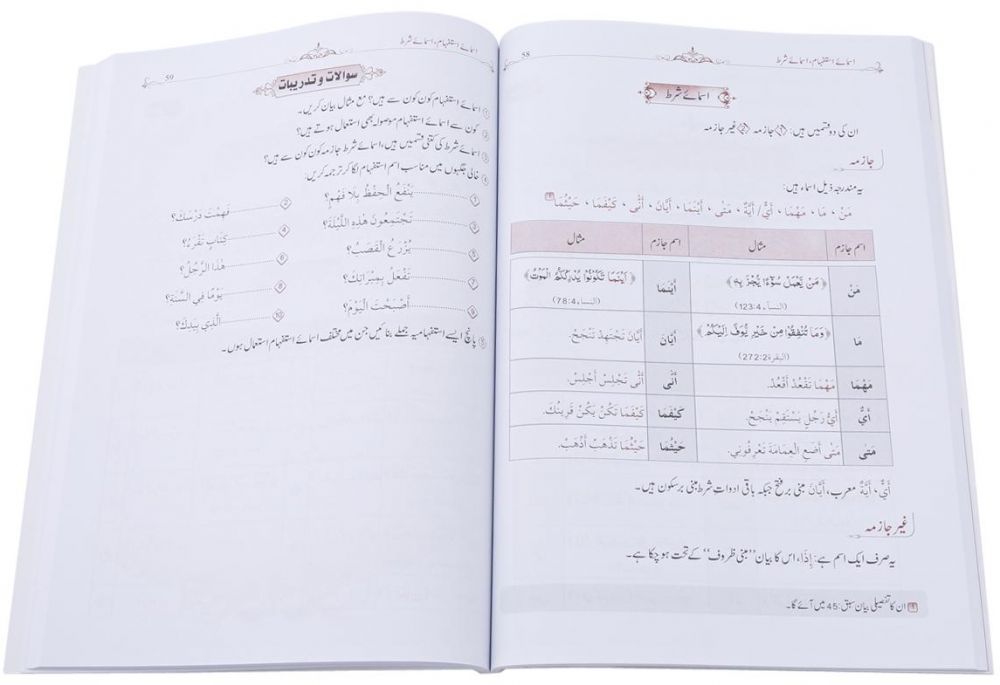 58
اسمائے استفہام، اسمائے شرط
اسمائے شرط
ان کی دو قسمیں ہیں: ① جازمہ ② غیر جازمہ
جازمہ
یہ مندرجہ ذیل اسماء ہیں:
مَنْ ، مَا ، مَهْمَا ، أَيٌّ / أَيَّةٌ ، مَتٰى ، أَيْنَمَا ، أَيَّانَ ، أَنّٰى ، كَيْفَمَا ، حَيْثُمَا
اسم جازم مثال اسم جازم مثال
مَنْ ﴿مَنْ يَّعْمَلْ سُوْٓءًا يُّجْزَ بِهٖ﴾ (النساء 123:4) أَيْنَمَا ﴿اَيْنَمَا تَكُوْنُوْا يُدْرِكْكُّمُ الْمَوْتُ﴾ (النساء 78:4)
مَا ﴿وَمَا تُنْفِقُوْا مِنْ خَيْرٍ يُّوَفَّ اِلَيْكُمْ﴾ (البقرة 272:2) أَيَّانَ أَيَّانَ تَجْتَهِدْ تَنْجَحْ.
مَهْمَا مَهْمَا تَقْعُدْ أَقْعُدْ. أَنّٰى أَنّٰى تَجْلِسْ أَجْلِسْ.
أَيٌّ أَيُّ رَجُلٍ يَسْتَقِمْ يَنْجَحْ. كَيْفَمَا كَيْفَمَا تَكُنْ يَكُنْ قَرِينُكَ.
مَتٰى مَتٰى أَضَعِ الْعِمَامَةَ تَعْرِفُونِي. حَيْثُمَا حَيْثُمَا تَذْهَبْ أَذْهَبْ.
أَيٌّ، أَيَّةٌ معرب، أَيَّانَ مبنی بر فتح جبکہ باقی ادواتِ شرط مبنی بر سکون ہیں۔
غیر جازمہ
یہ صرف ایک اسم ہے: إِذَا، اس کا بیان ”مبنی ظروف“ کے تحت ہو چکا ہے۔
ان کا تفصیلی بیان سبق: 45 میں آئے گا۔
59
اسمائے استفہام، اسمائے شرط
سوالات و تدریبات
① اسمائے استفہام کون کون سے ہیں؟ مع مثال بیان کریں۔
② کون سے اسمائے استفہام موصولہ بھی استعمال ہوتے ہیں؟
③ اسمائے شرط کی کتنی قسمیں ہیں، اسمائے شرط جازمہ کون کون سے ہیں؟
④ خالی جگہوں میں مناسب اسم استفہام لگا کر ترجمہ کریں:
① ........ يَنْفَعُ الْحِفْظُ بِلَا فَهْمٍ؟ ② ........ فَهِمْتَ دَرْسَكَ؟
③ ........ تَجْتَمِعُونَ هٰذِهِ اللَّيْلَةَ؟ ④ ........ كِتَابٍ تَقْرَءُ؟
⑤ ........ يُزْرَعُ الْقَصَبُ؟ ⑥ ........ هٰذَا الرَّجُلُ؟
⑦ ........ تَفْعَلُ بِمِبْرَاتِكَ؟ ⑧ ........ يَوْمًا فِي السَّنَةِ؟
⑨ ........ أَصْبَحْتَ الْيَوْمَ؟ ⑩ ........ الَّذِي بِيَدِكَ؟
⑤ پانچ ایسے استفہامیہ جملے بنائیں جن میں مختلف اسمائے استفہام استعمال ہوں۔